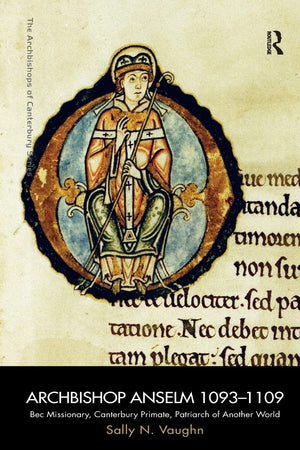 The Archbishops of Canterbury Series
ROUTLEDGE
iue med
itanda
timorem
non su
uelociter. sed pa
tatione. Nec debet int
tam plegat: sed quan
ARCHBISHOP ANSELM 1093–1109
Bec Missionary, Canterbury Primate, Patriarch of Another World
Sally N. Vaughn